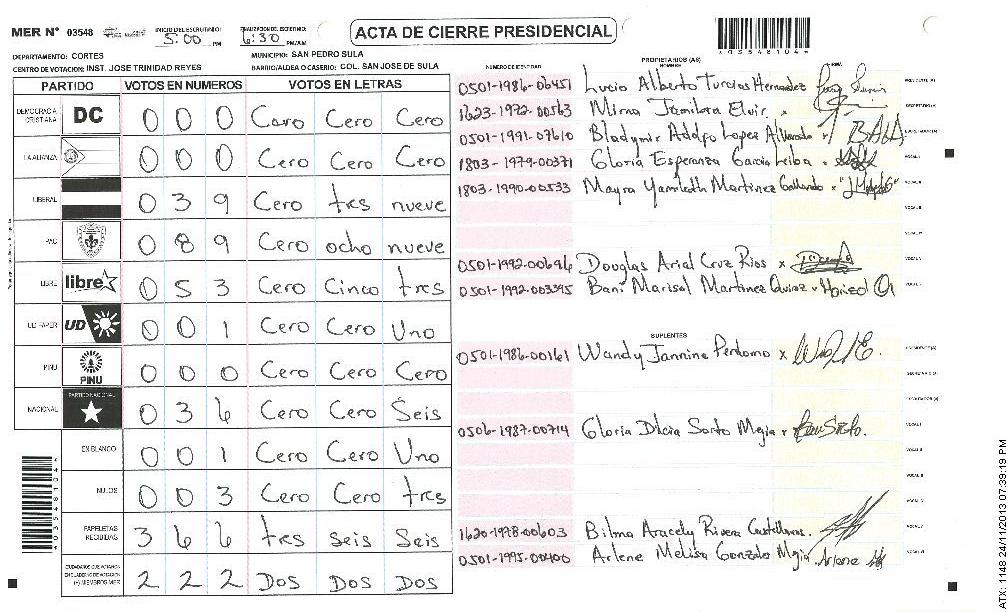 MER N° 03548
INICIO DEL ESCRUTINIO: 5:00 PM
FINALIZACION DEL ESCRUTINIO: 6:30 PM/AM
ACTA DE CIERRE PRESIDENCIAL
*03548104*
DEPARTAMENTO: CORTES
MUNICIPIO: SAN PEDRO SULA
CENTRO DE VOTACION: INST. JOSE TRINIDAD REYES
BARRIO/ALDEA O CASERIO: COL. SAN JOSE DE SULA
PARTIDO VOTOS EN NUMEROS VOTOS EN LETRAS
DEMOCRACIA CRISTIANA DC 0 0 0 Cero Cero Cero
LA ALIANZA 0 0 0 Cero Cero Cero
LIBERAL 0 3 9 Cero tres nueve
PAC 0 8 9 Cero ocho nueve
LIBRE libre 0 5 3 Cero Cinco tres
UD FAPER UD 0 0 1 Cero Cero Uno
PINU PINU 0 0 0 Cero Cero Cero
NACIONAL PARTIDO NACIONAL 0 3 6 Cero Cero Seis
EN BLANCO 0 0 1 Cero Cero Uno
NULOS 0 0 3 Cero Cero tres
PAPELETAS RECIBIDAS 3 6 6 tres seis Seis
CIUDADANOS QUE VOTARON EN CUADERNO DE VOTACION (+) MIEMBROS MER 2 2 2 Dos Dos Dos
PROPIETARIOS (AS)
NUMERO DE IDENTIDAD NOMBRE FIRMA
0501-1986-06451 Lucio Alberto Turcios Hernandez PRESIDENTE (A)
1623-1972-00563 Mirna Jamileth Elvir SECRETARIO (A)
0501-1991-07610 Bladymir Adolfo Lopez Alvarado ESCRUTADOR (A)
1803-1979-00371 Gloria Esperanza Garcia Leiba VOCAL I
1803-1990-00533 Mayra Yamileth Martinez Gallardo VOCAL II
0501-1992-00696 Douglas Arial Cruz Rios
0501-1992-003395 Bani Marisol Martinez Quiroz
SUPLENTES
0501-1986-00161 Wandy Jannine Perdomo PRESIDENTE (A)
SECRETARIO (A)
ESCRUTADOR (A)
0506-1987-00714 Gloria Dilcia Sorto Mejia VOCAL I
1620-1978-00603 Bilma Aracely Rivera Castellanos
0501-1995-00400 Arlene Melisa Gonzales Mejia Arlene
ATX: 1148 24/11/2013 07:39:19 PM